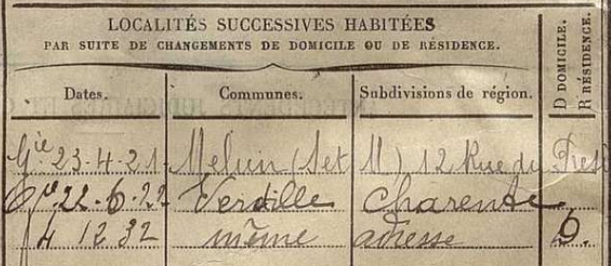 LOCALITÉS SUCCESSIVES HABITÉES
PAR SUITE DE CHANGEMENTS DE DOMICILE OU DE RÉSIDENCE.
D DOMICILE.
R RÉSIDENCE.
Dates. Communes. Subdivisions de région.
Gie 23-4-21 Melun (Set M) 12 Rue du
22-6-22 Verdille Charente
4 12 32 même adresse D.